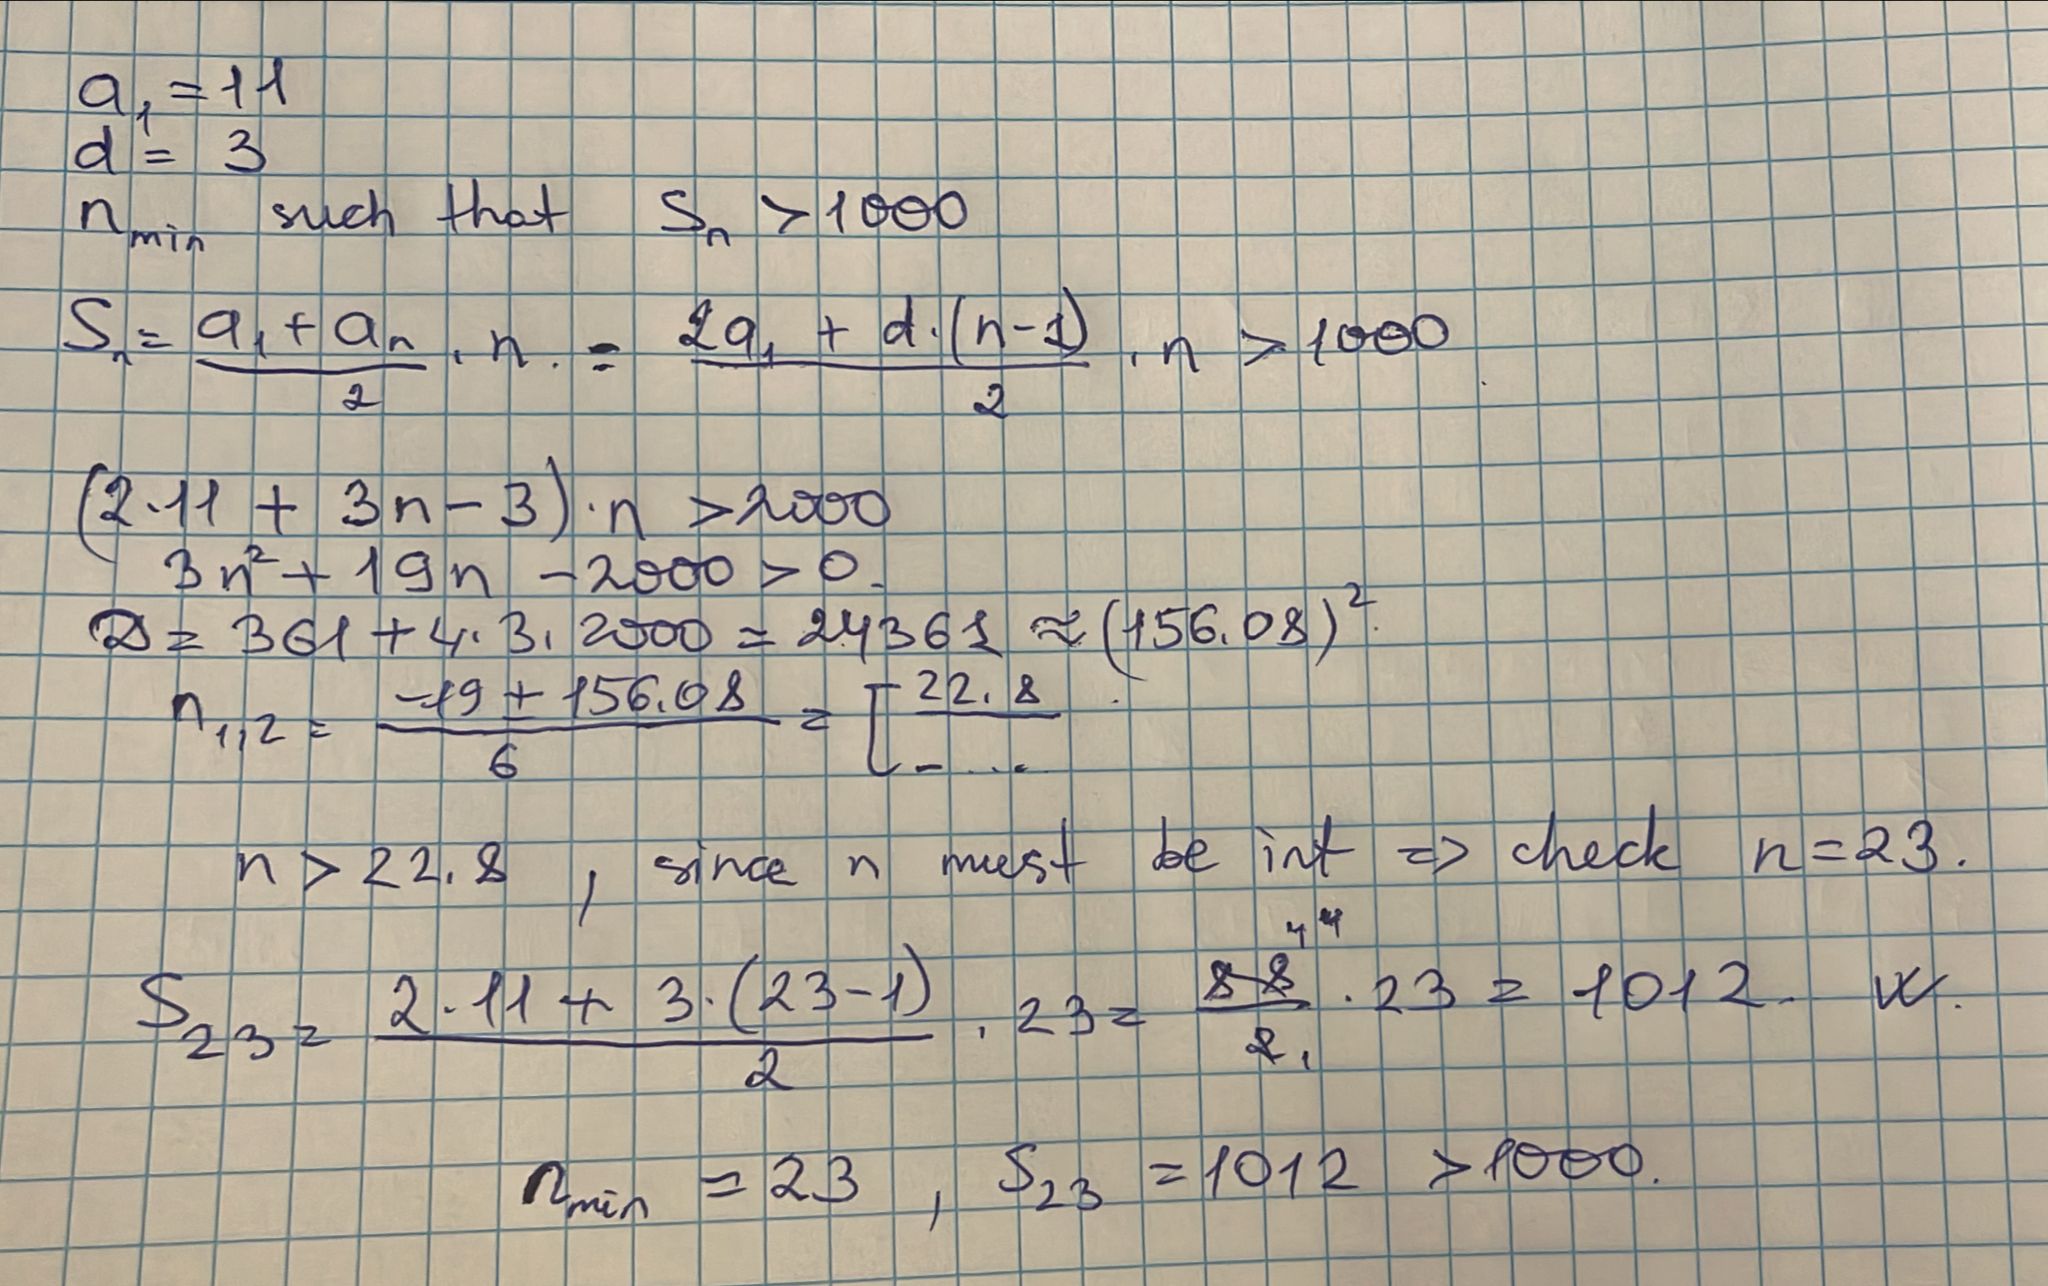 a₁ = 11
d = 3
n_min such that Sₙ > 1000
Sₙ = (a₁ + aₙ)/2 · n. = (2a₁ + d·(n-1))/2 · n > 1000.
(2·11 + 3n - 3)·n > 2000
3n² + 19n - 2000 > 0.
D = 361 + 4·3·2000 = 24361 ≈ (156.08)².
n₁,₂ = (-19 ± 156.08)/6 = [ 22.8
- ...
n > 22.8, since n must be int => check n = 23.
44
S₂₃ = (2·11 + 3·(23-1))/2 · 23 = 88/2 · 23 = 1012.
n_min = 23, S₂₃ = 1012 > 1000.